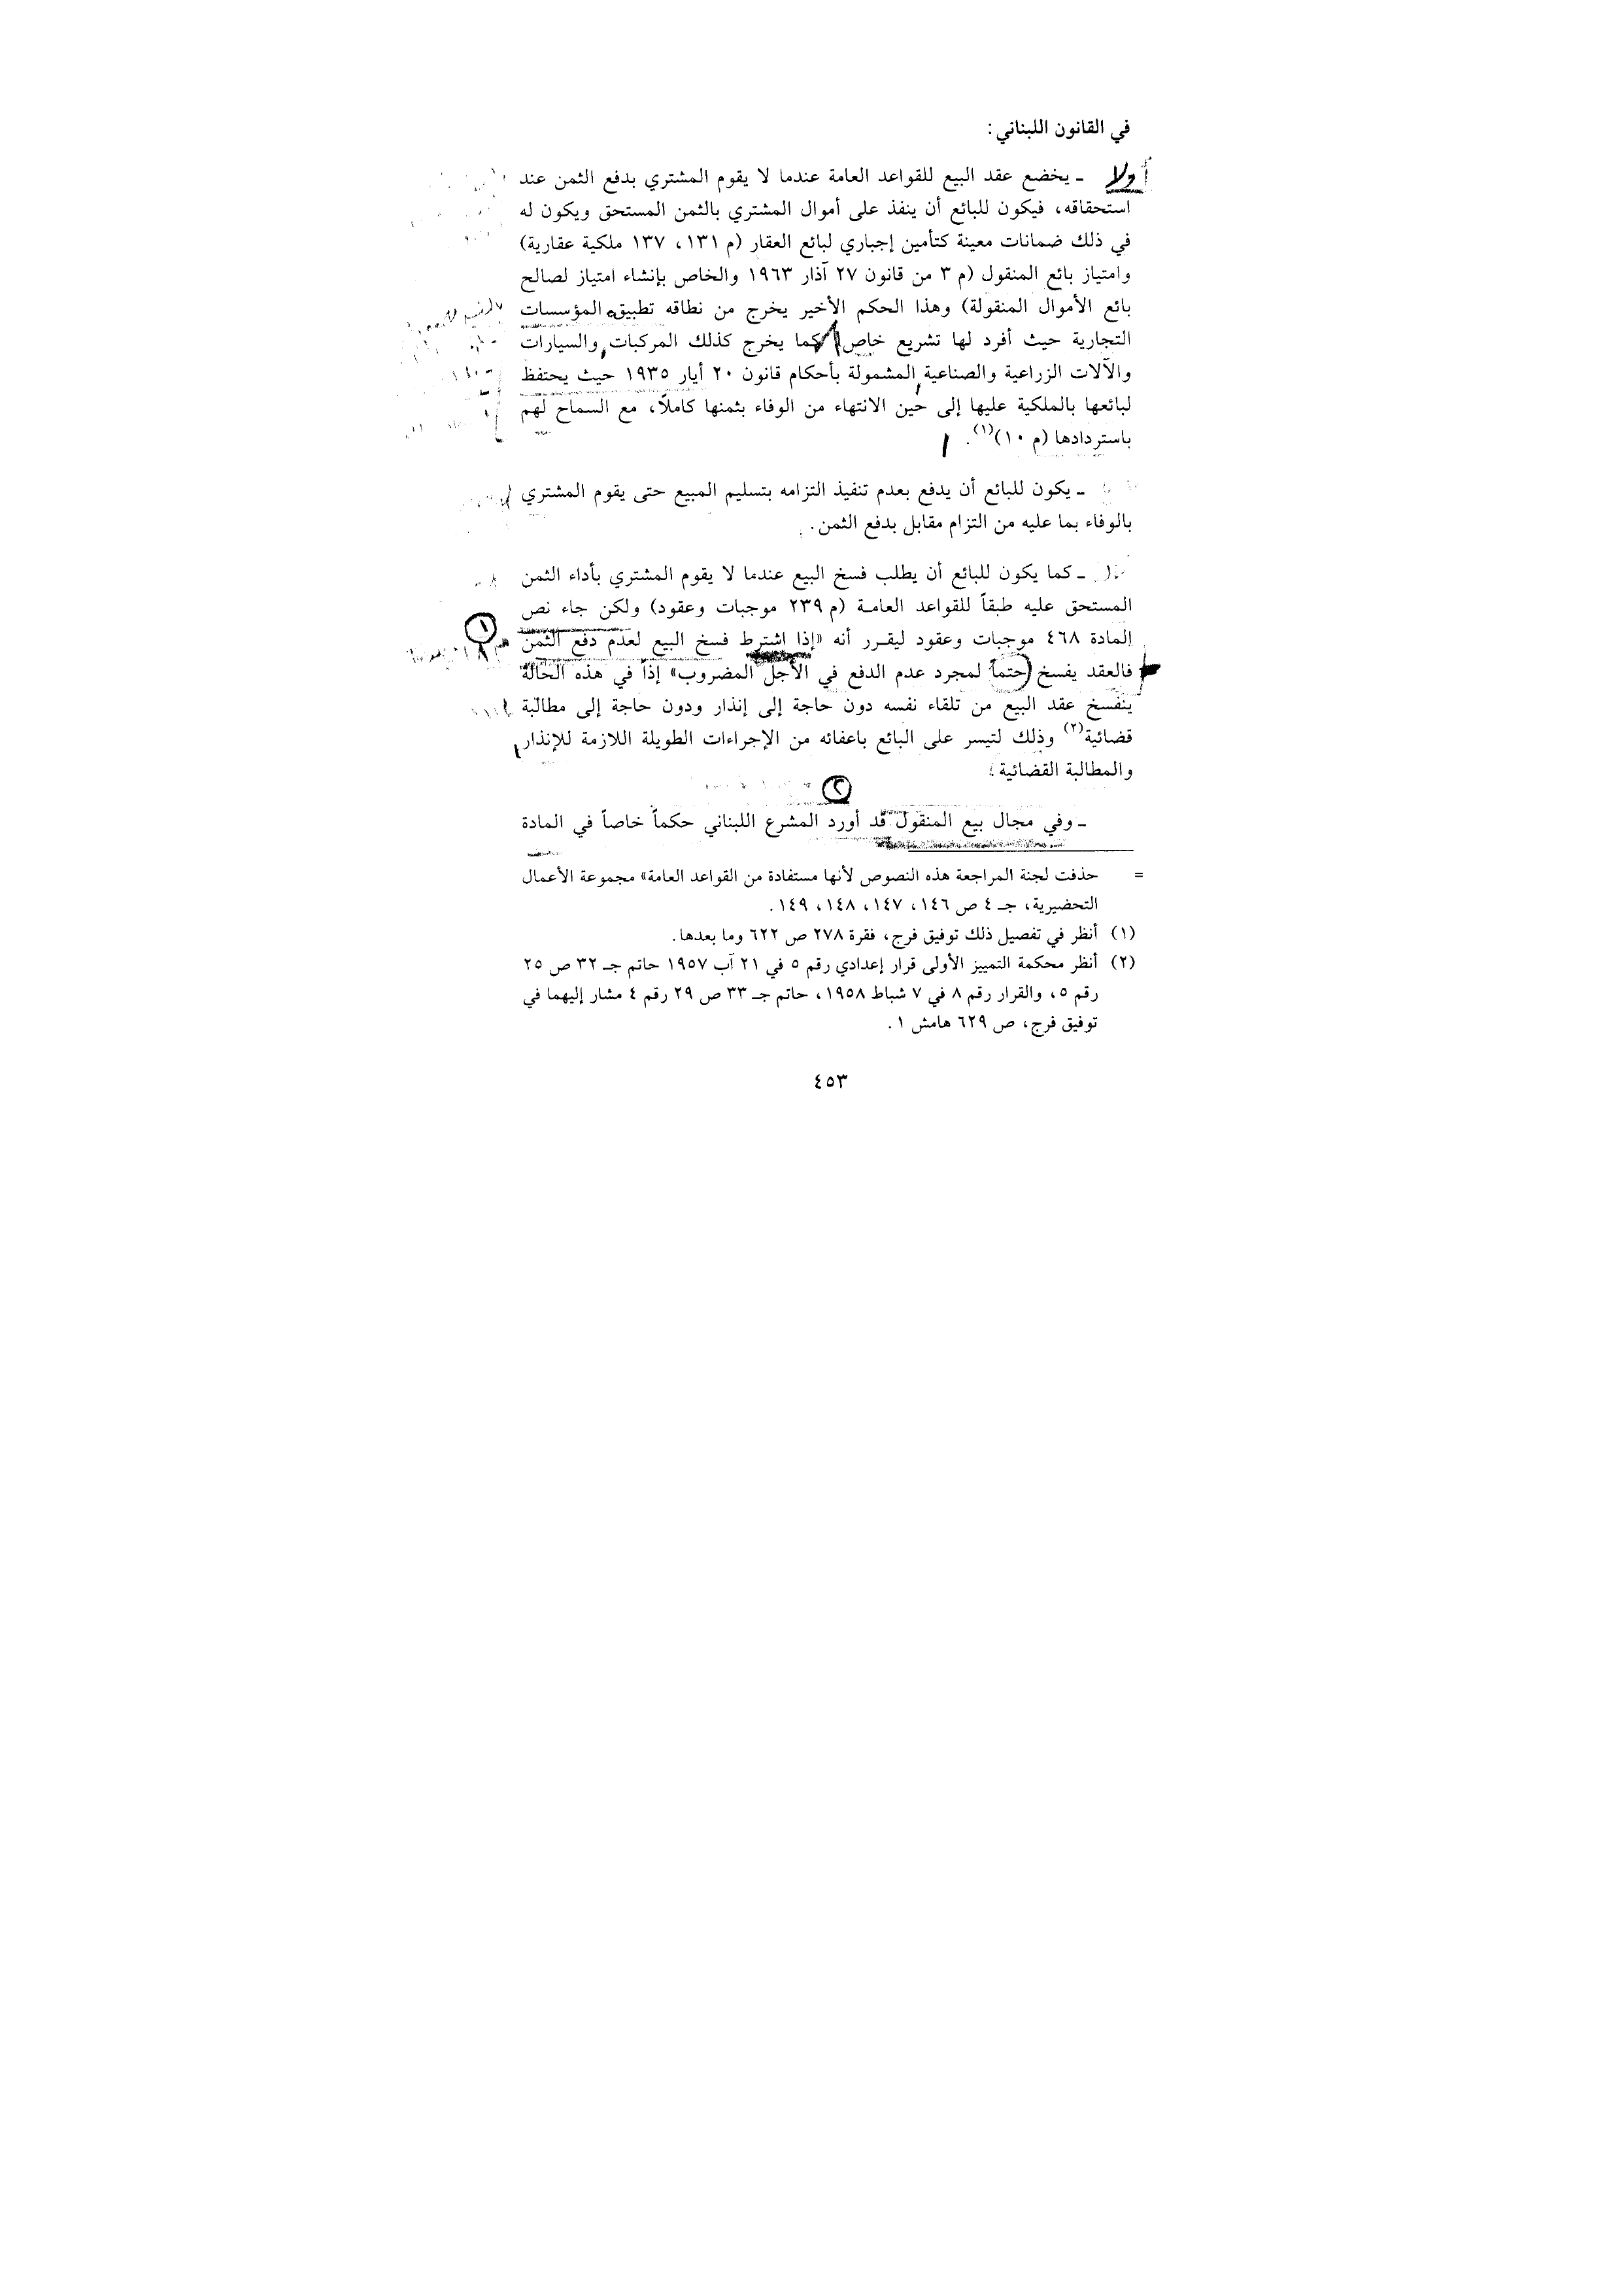 في القانون اللبناني:
أولا ـ يخضع عقد البيع للقواعد العامة عندما لا يقوم المشتري بدفع الثمن عند
استحقاقه، فيكون للبائع أن ينفذ على أموال المشتري بالثمن المستحق ويكون له
في ذلك ضمانات معينة كتأمين إجباري لبائع العقار (م ١٣١، ١٣٧ ملكية عقارية)
وامتياز بائع المنقول (م ٣ من قانون ٢٧ آذار ١٩٦٣ والخاص بإنشاء امتياز لصالح
بائع الأموال المنقولة) وهذا الحكم الأخير يخرج من نطاقه تطبيق المؤسسات
التجارية حيث أفرد لها تشريع خاص كما يخرج كذلك المركبات والسيارات
والآلات الزراعية والصناعية المشمولة بأحكام قانون ٢٠ أيار ١٩٣٥ حيث يحتفظ
لبائعها بالملكية عليها إلى حين الانتهاء من الوفاء بثمنها كاملاً، مع السماح لهم
باستردادها (م ١٠)(١).
ـ يكون للبائع أن يدفع بعدم تنفيذ التزامه بتسليم المبيع حتى يقوم المشتري
بالوفاء بما عليه من التزام مقابل بدفع الثمن.
ـ كما يكون للبائع أن يطلب فسخ البيع عندما لا يقوم المشتري بأداء الثمن
المستحق عليه طبقاً للقواعد العامة (م ٢٣٩ موجبات وعقود) ولكن جاء نص
المادة ٤٦٨ موجبات وعقود ليقرر أنه «إذا اشترط فسخ البيع لعدم دفع الثمن ١
فالعقد يفسخ (حتماً لمجرد عدم الدفع في الأجل المضروب» إذاً في هذه الحالة
ينفسخ عقد البيع من تلقاء نفسه دون حاجة إلى إنذار ودون حاجة إلى مطالبة
قضائية(٢) وذلك لتيسر على البائع باعفائه من الإجراءات الطويلة اللازمة للإنذار
والمطالبة القضائية.
٢
ـ وفي مجال بيع المنقول قد أورد المشرع اللبناني حكماً خاصاً في المادة
= حذفت لجنة المراجعة هذه النصوص لأنها مستفادة من القواعد العامة» مجموعة الأعمال
التحضيرية، جـ ٤ ص ١٤٦، ١٤٧، ١٤٨، ١٤٩.
(١) أنظر في تفصيل ذلك توفيق فرج، فقرة ٢٧٨ ص ٦٢٢ وما بعدها.
(٢) أنظر محكمة التمييز الأولى قرار إعدادي رقم ٥ في ٢١ آب ١٩٥٧ حاتم جـ ٣٢ ص ٢٥
رقم ٥، والقرار رقم ٨ في ٧ شباط ١٩٥٨، حاتم جـ ٣٣ ص ٢٩ رقم ٤ مشار إليهما في
توفيق فرج، ص ٦٢٩ هامش ١.
٤٥٣